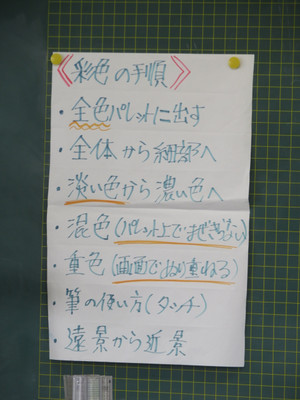 《彩色の手順》
・全色パレットに出す
・全体から細部へ
・淡い色から濃い色へ
・混色(パレット上でまぜすぎない)
・重色(画面でぬり重ねる)
・筆の使い方(タッチ)
・遠景から近景